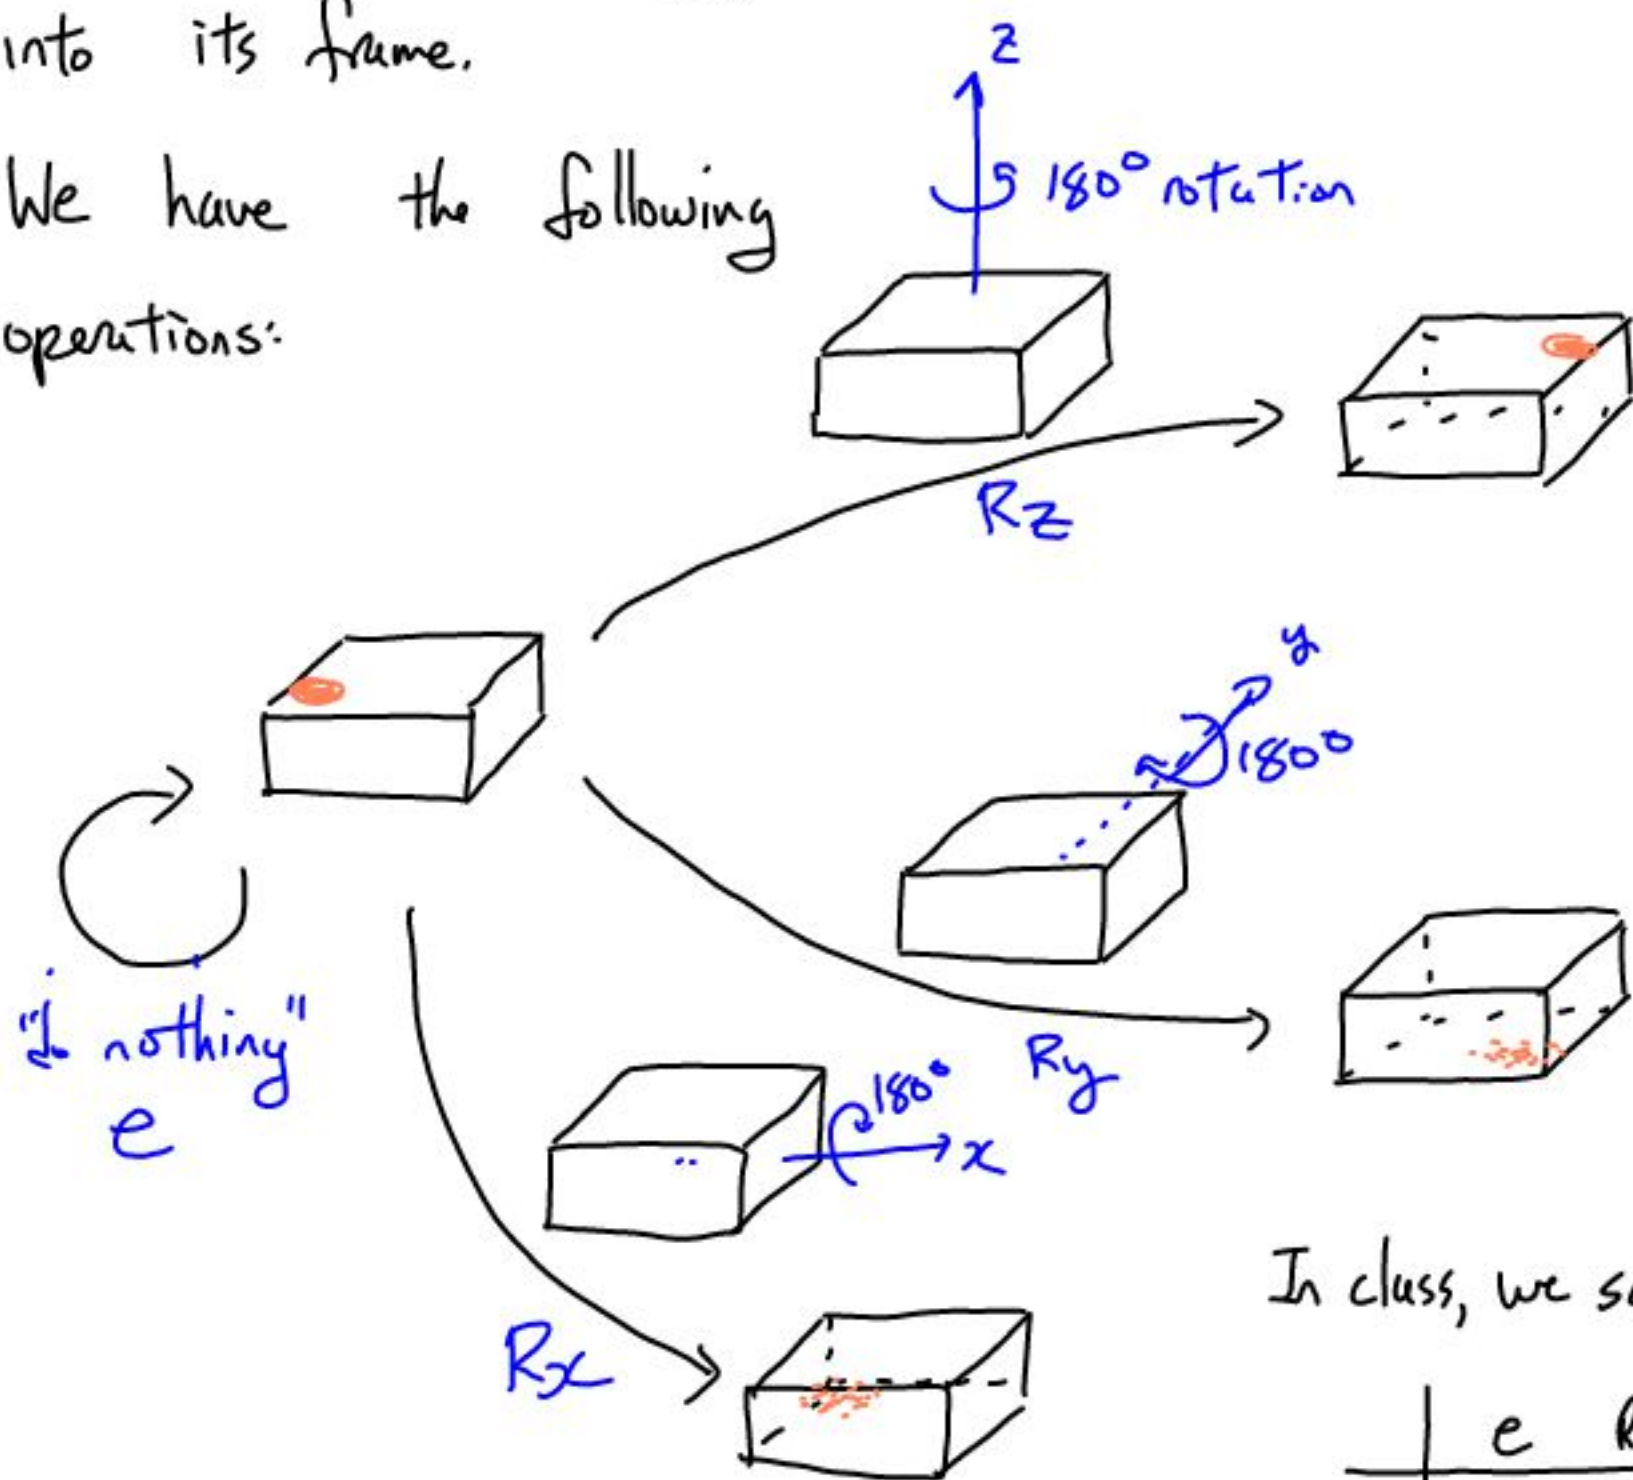 into its frame.
We have the following
operations:
z
180° rotation
Rz
y
180°
Ry
"do nothing"
e
180°
x
Rx
In class, we
e